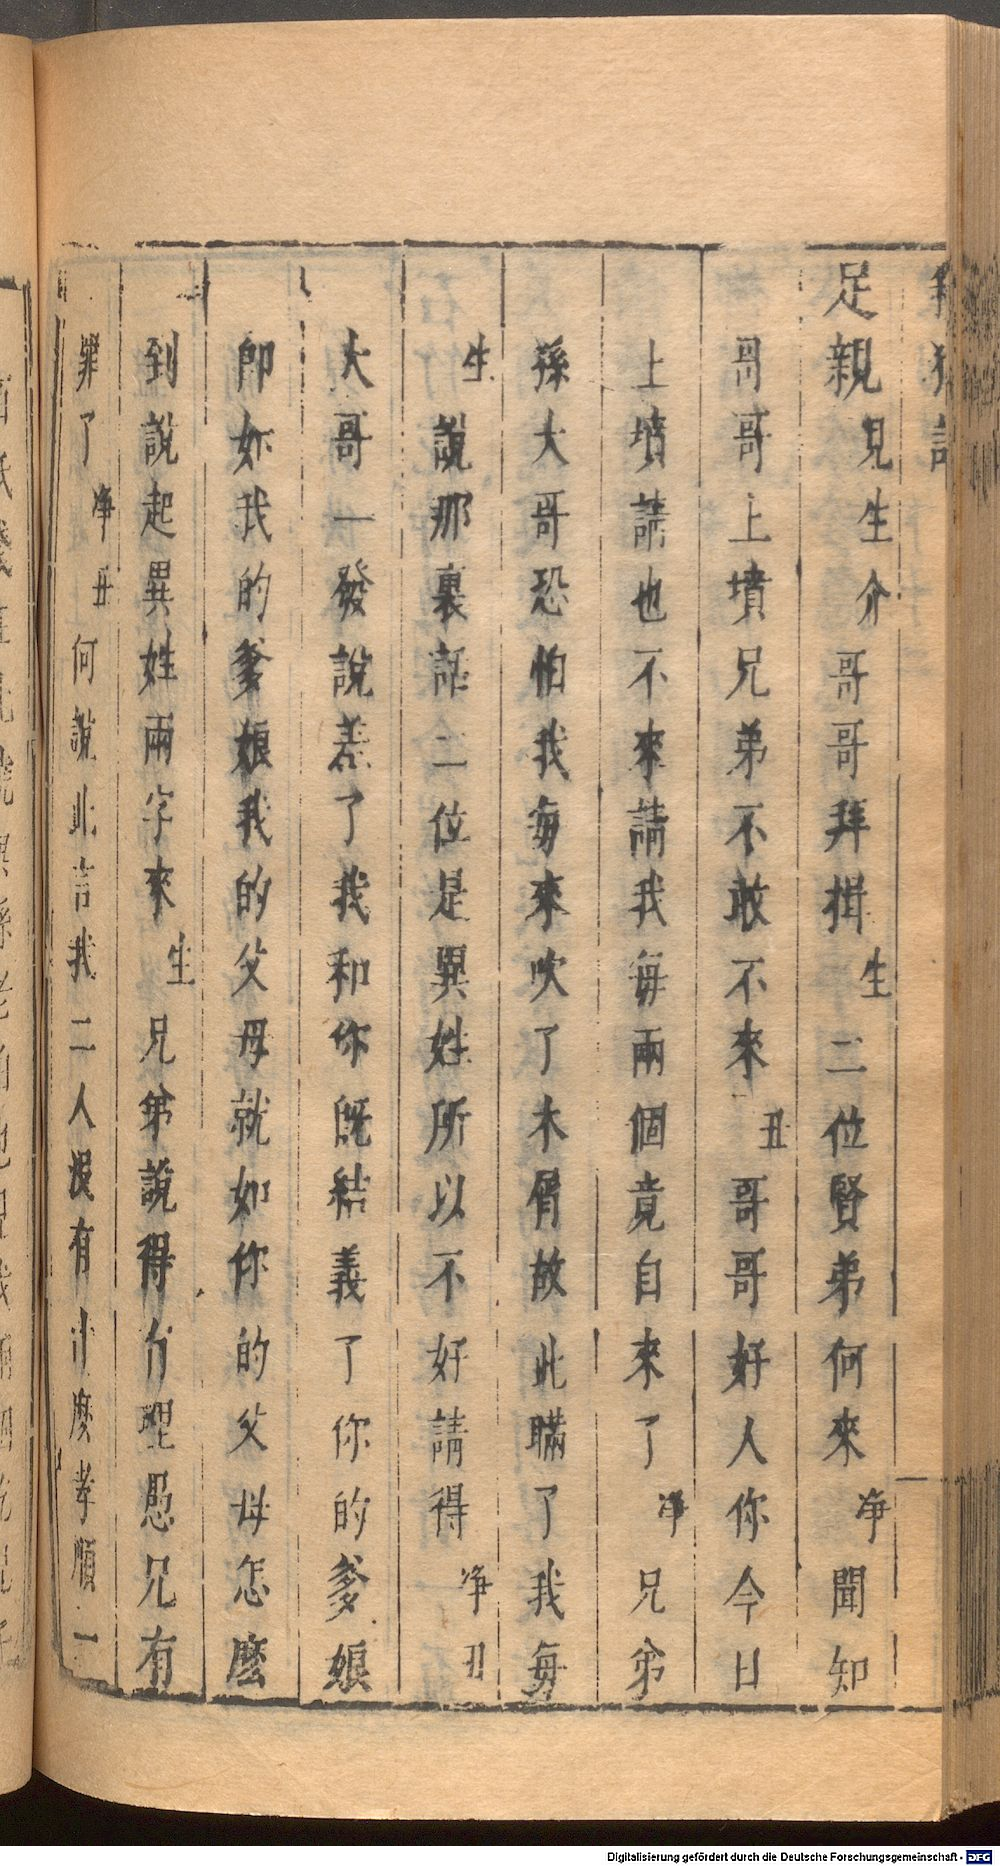 足親見生介哥哥拜揖生二位賢弟何來淨聞知
哥哥上墳兄弟不敢不來丑哥哥好人你今日
上墳請也不來請我每兩個竟自來了淨兄弟
孫大哥恐怕我每來吹了木屑故此瞞了我每
生說那裏話二位是異姓所以不好請得淨丑
大哥一發說差了我和你既結義了你的爹娘
即如我的爹娘我的父母就如你的父母怎麽
到說起異姓兩字來生兄弟說得有理愚兄有
罪了淨丑何說此言我二人沒有什麽孝順一
Digitalisierung gefördert durch die Deutsche Forschungsgemeinschaft - DFG